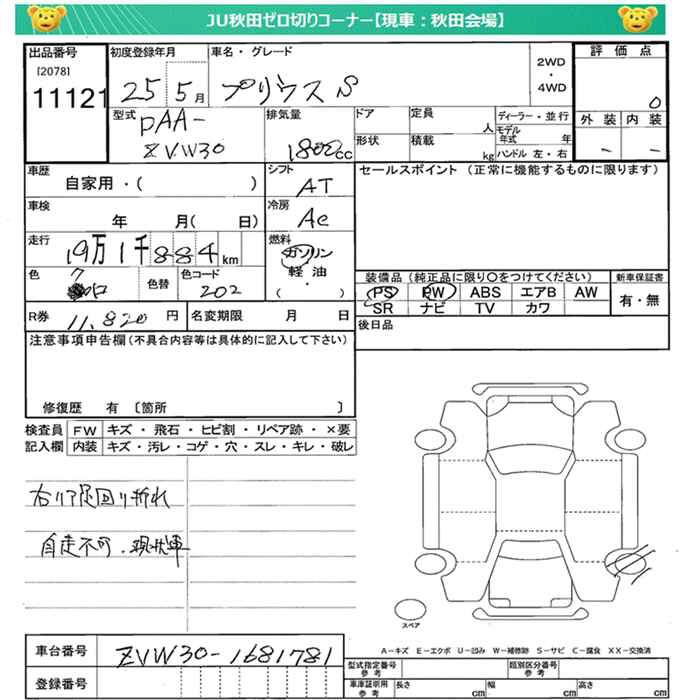 JU秋田ゼロ切りコーナー【現車：秋田会場】
出品番号
[2078]
11121
初度登録年月
25 5月
車名・グレード
プリウス S
2WD
・
4WD
評価点
0
外装 内装
－ －
型式
DAA-
ZVW30
排気量
1800cc
ドア
定員
人
形状
積載
kg
ディーラー・並行
モデル
年式 年
ハンドル 左・右
車歴
自家用・( )
シフト
AT
セールスポイント (正常に機能するものに限ります)
車検
年 月( 日)
冷房
AC
走行
19万1千884km
燃料
ガソリン
軽油
( )
色
色替
色コード
202
装備品 (純正品に限り○をつけてください)
新車保証書
PS PW ABS エアB AW
SR ナビ TV カワ
有・無
R券
11,820 円
名変期限 月 日
後日品
注意事項申告欄(不具合内容等は具体的に記入して下さい)
修復歴 有 〔箇所 〕
検査員
記入欄
FW キズ・飛石・ヒビ割・リペア跡・×要
内装 キズ・汚レ・コゲ・穴・スレ・キレ・破レ
右リア足回り折れ
自走不可・現状車
スペア
A－キズ E－エクボ U－凹み W－補修跡 S－サビ C－腐食 XX－交換済
車台番号
ZVW30-1681781
登録番号
型式指定番号
参考
類別区分番号
参考
車庫証明用
参考
長さ cm
幅 cm
高さ cm